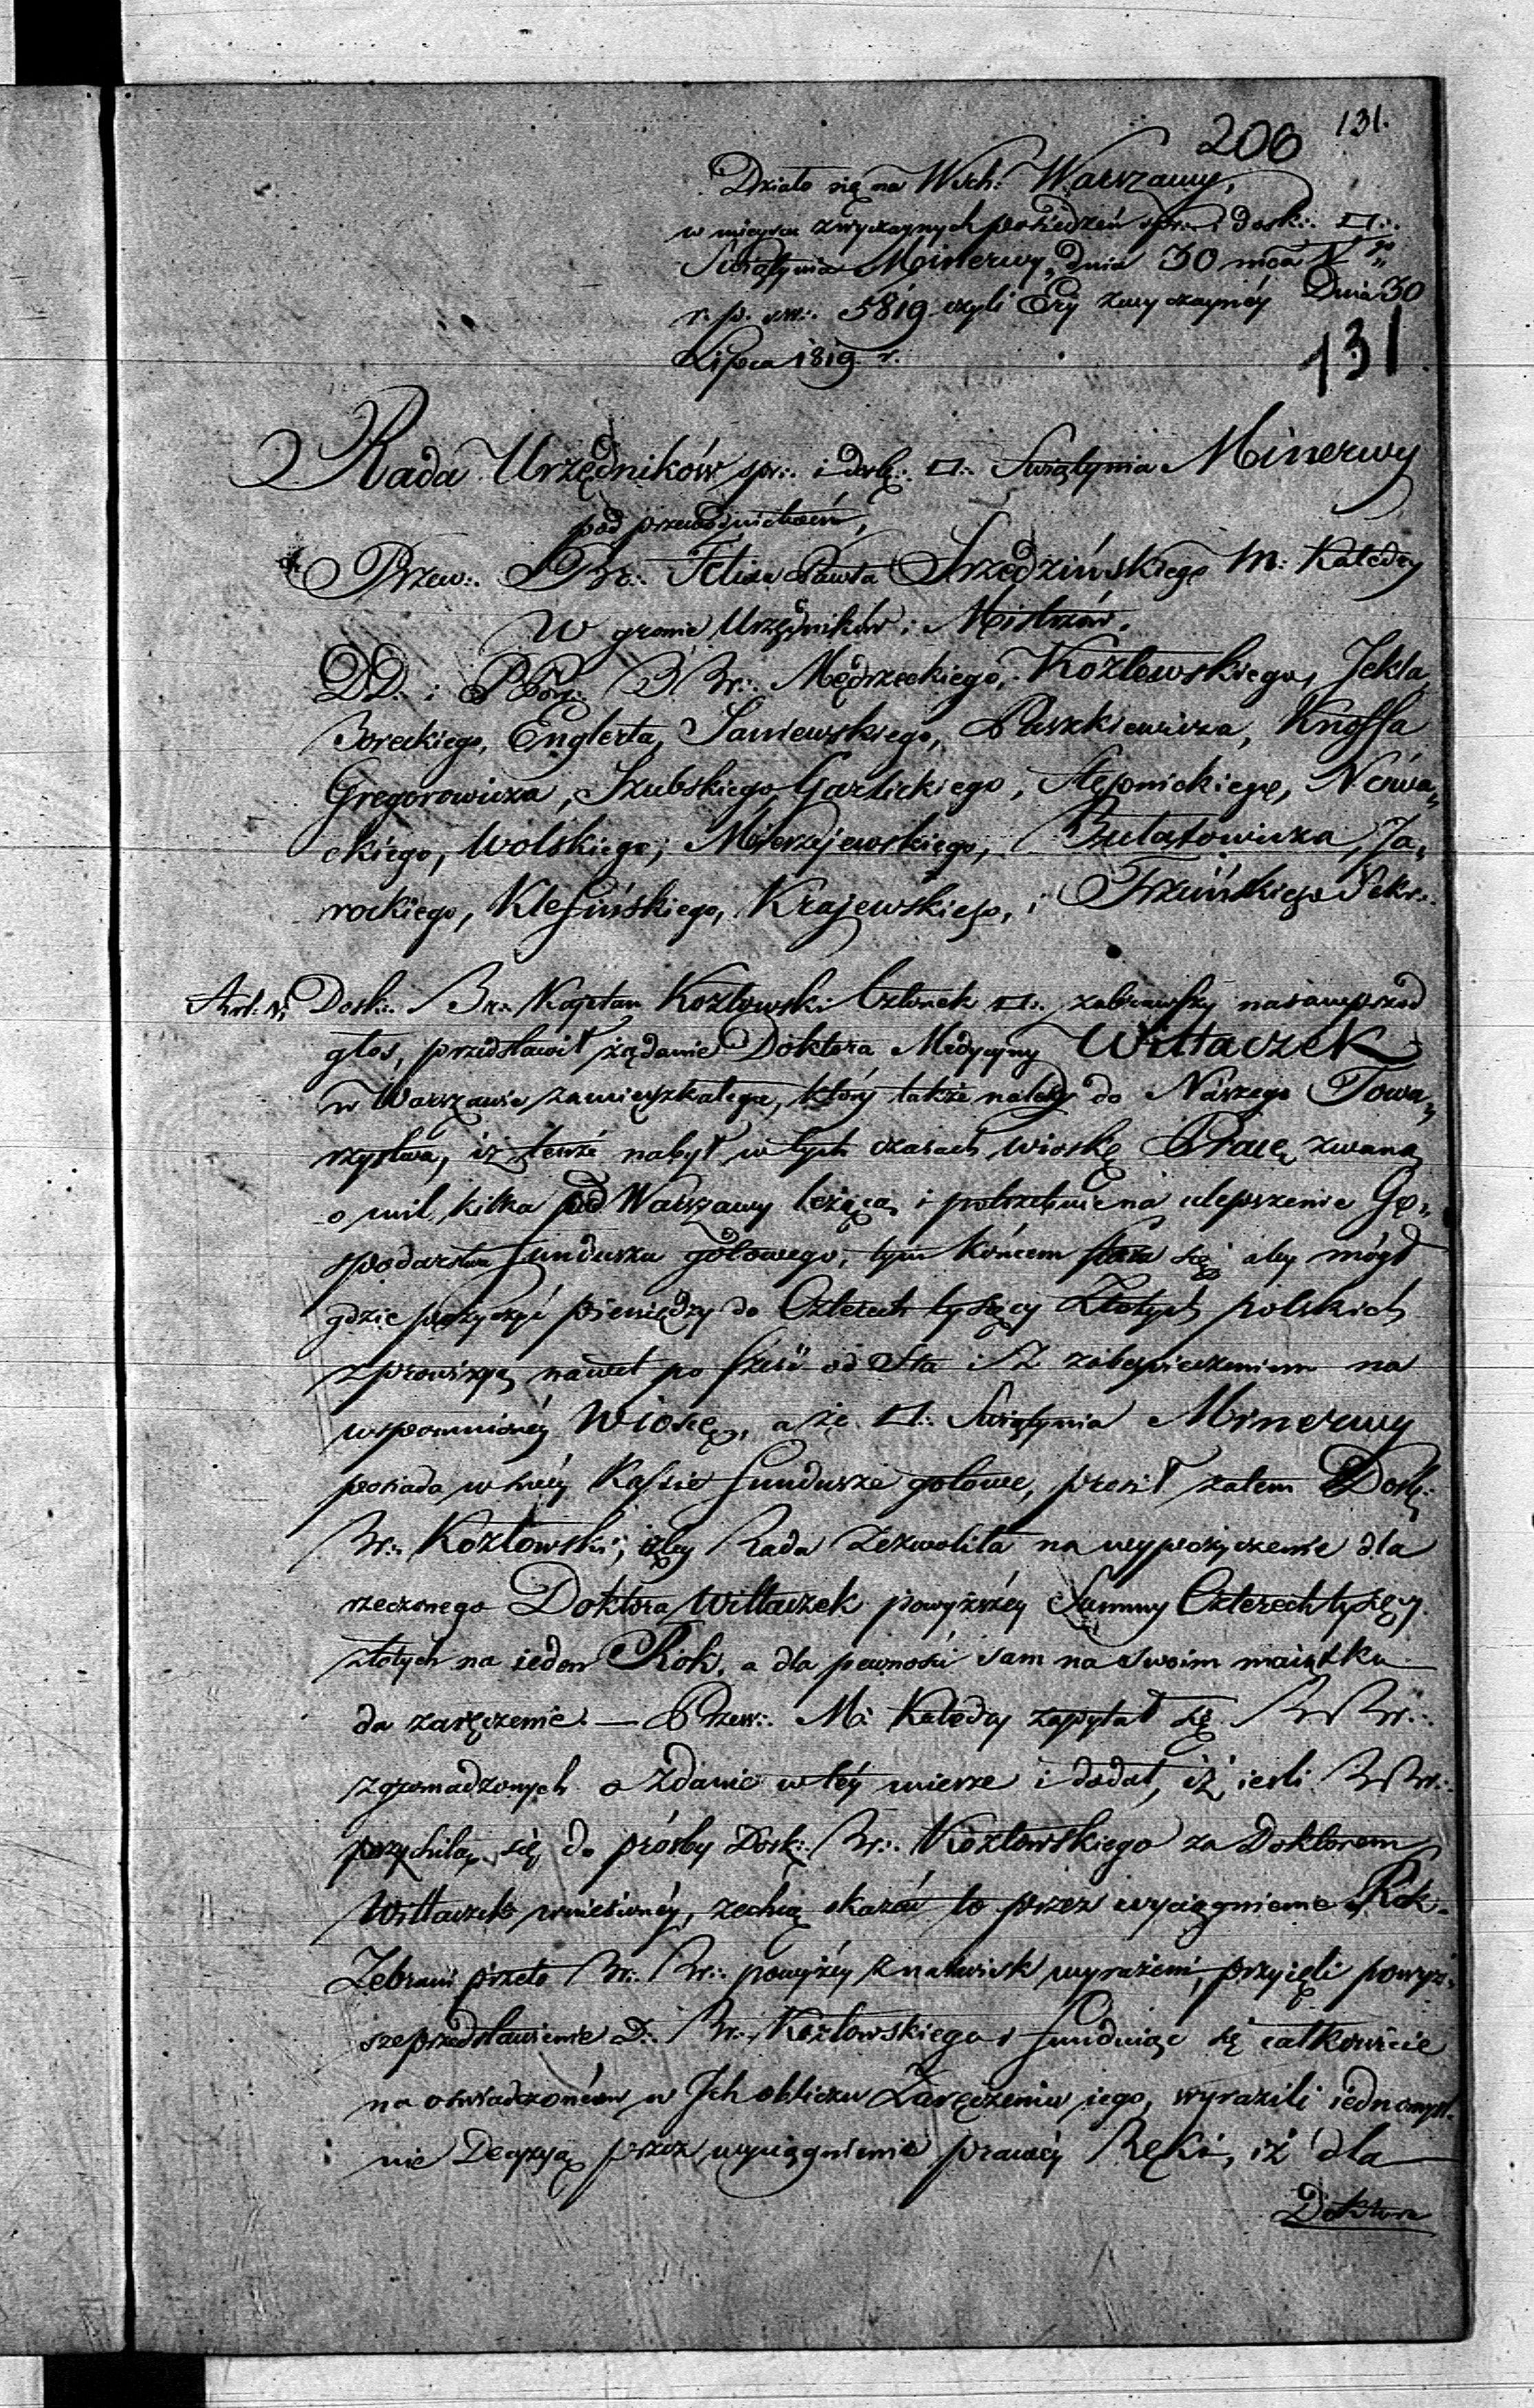 206 131.
Działo się na Wsch: Warszawy,
w mieyscu zwyczaynych posiedzeń spr.: i dosk.: □.:
Swiątynia Minerwy, dnia 30 mca V go
r. p. sw.: 5819 czyli Ery zwyczaynéy Dnia 30
Lipca 1819 r.
131
Rada Urzędników spr.: i dosk.: □.: Swiątynia Minerwy
pod przewodnictwem,
Przew.: Br.: Felixa Pawła Srzedzińskiego M: Katedry
W gronie Urzędników i Mistrzów.
DD.: i PPrz.: BBr.: Mędrzeckiego, Kozłowskiego, Jekla,
Boreckiego, Englerta, Saniewskiego, Paszkiewicza, Knoffa
Gregorowicza, Szubskiego, Garlickiego, Stęponickiego, Nowa„
ckiego, Wolskiego, Mierzejewskiego, Bułatowicza, Ja„
rockiego, Klesińskiego, Krajewskiego, i Trzcińskiego Sekr.:
Art. 1. Dosk.: Br.: Kajetan Kozłowski Członek □.: zabrawszy nasamprzód
głos, przedstawił żądanie Doktora Medycyny Wittaczek
w Warszawie zamieszkałego, który także należy do Naszego Towa„
rzystwa, iż tenże nabył w tych czasach wioskę Pracę zwaną
o mil kilka pod Warszawy leżącą i potrzebuie na ulepszenie Go„
spodarstwa funduszu gotowego, tym końcem stara się aby mógł
gdzie pożyczyć pieniędzy do Czterech tysięcy Złotych polskich
z prowizyą nawet po sześć od Sta i Z zabespieczeniem na
wspomnionéy Wioscę, a że □.: Swiątynia Minerwy
posiada w swéy Kassie fundusze gotowe, prosił zatem Dosk.:
Br.: Kozłowski, iżby Rada Zezwoliła na wypożyczenie dla
rzeczonego Doktora Wittaczek powyższéy Summy Czterech tysięcy
złotych na ieden Rok, a dla pewności sam na swoim maiątku
da zaręczenie. — Przew.: M: Katedry zapytał się BBr.:
zgromadzonych o zdanie w téy mierze i dodał, iż iesli BBr.:
przychilą się do prósby Dosk.: Br.: Kozłowskiego za Doktorem
Wittaczek wniesionéy, zechcą okazać to przez wyciągnienie Rąk.
Zebrani przeto Br.: Br.: powyżéy z nazwisk wyrażeni, przyięli powyż„
sze przedstawienie D.: Br.: Kozłowskiego i funduiąc się całkowicie
na oswiadczonéem w Jch obliczu Zaręczeniu jego, wyrazili iednomysl„
nie Decyzyą przez wyciągnienie prawéy Ręki, iż dla
Doktora